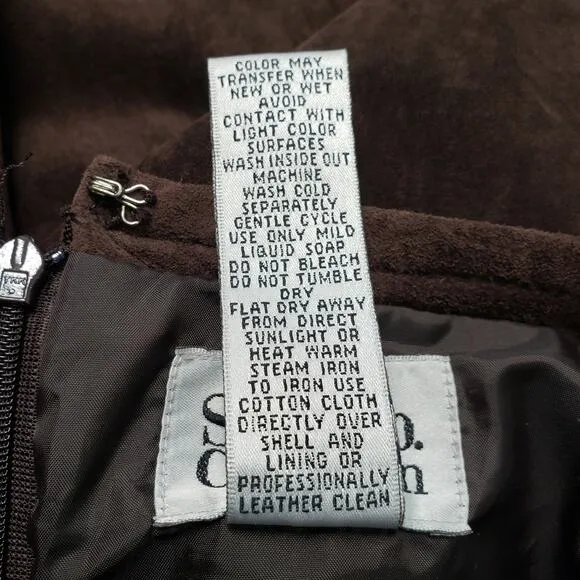 COLOR MAY
TRANSFER WHEN
NEW OR WET
AVOID
CONTACT WITH
LIGHT COLOR
SURFACES
WASH INSIDE OUT
MACHINE
WASH COLD
SEPARATELY
GENTLE CYCLE
USE ONLY MILD
LIQUID SOAP
DO NOT BLEACH
DO NOT TUMBLE
DRY
FLAT DRY AWAY
FROM DIRECT
SUNLIGHT OR
HEAT WARM
STEAM IRON
TO IRON USE
COTTON CLOTH
DIRECTLY OVER
SHELL AND
LINING OR
PROFESSIONALLY
LEATHER CLEAN